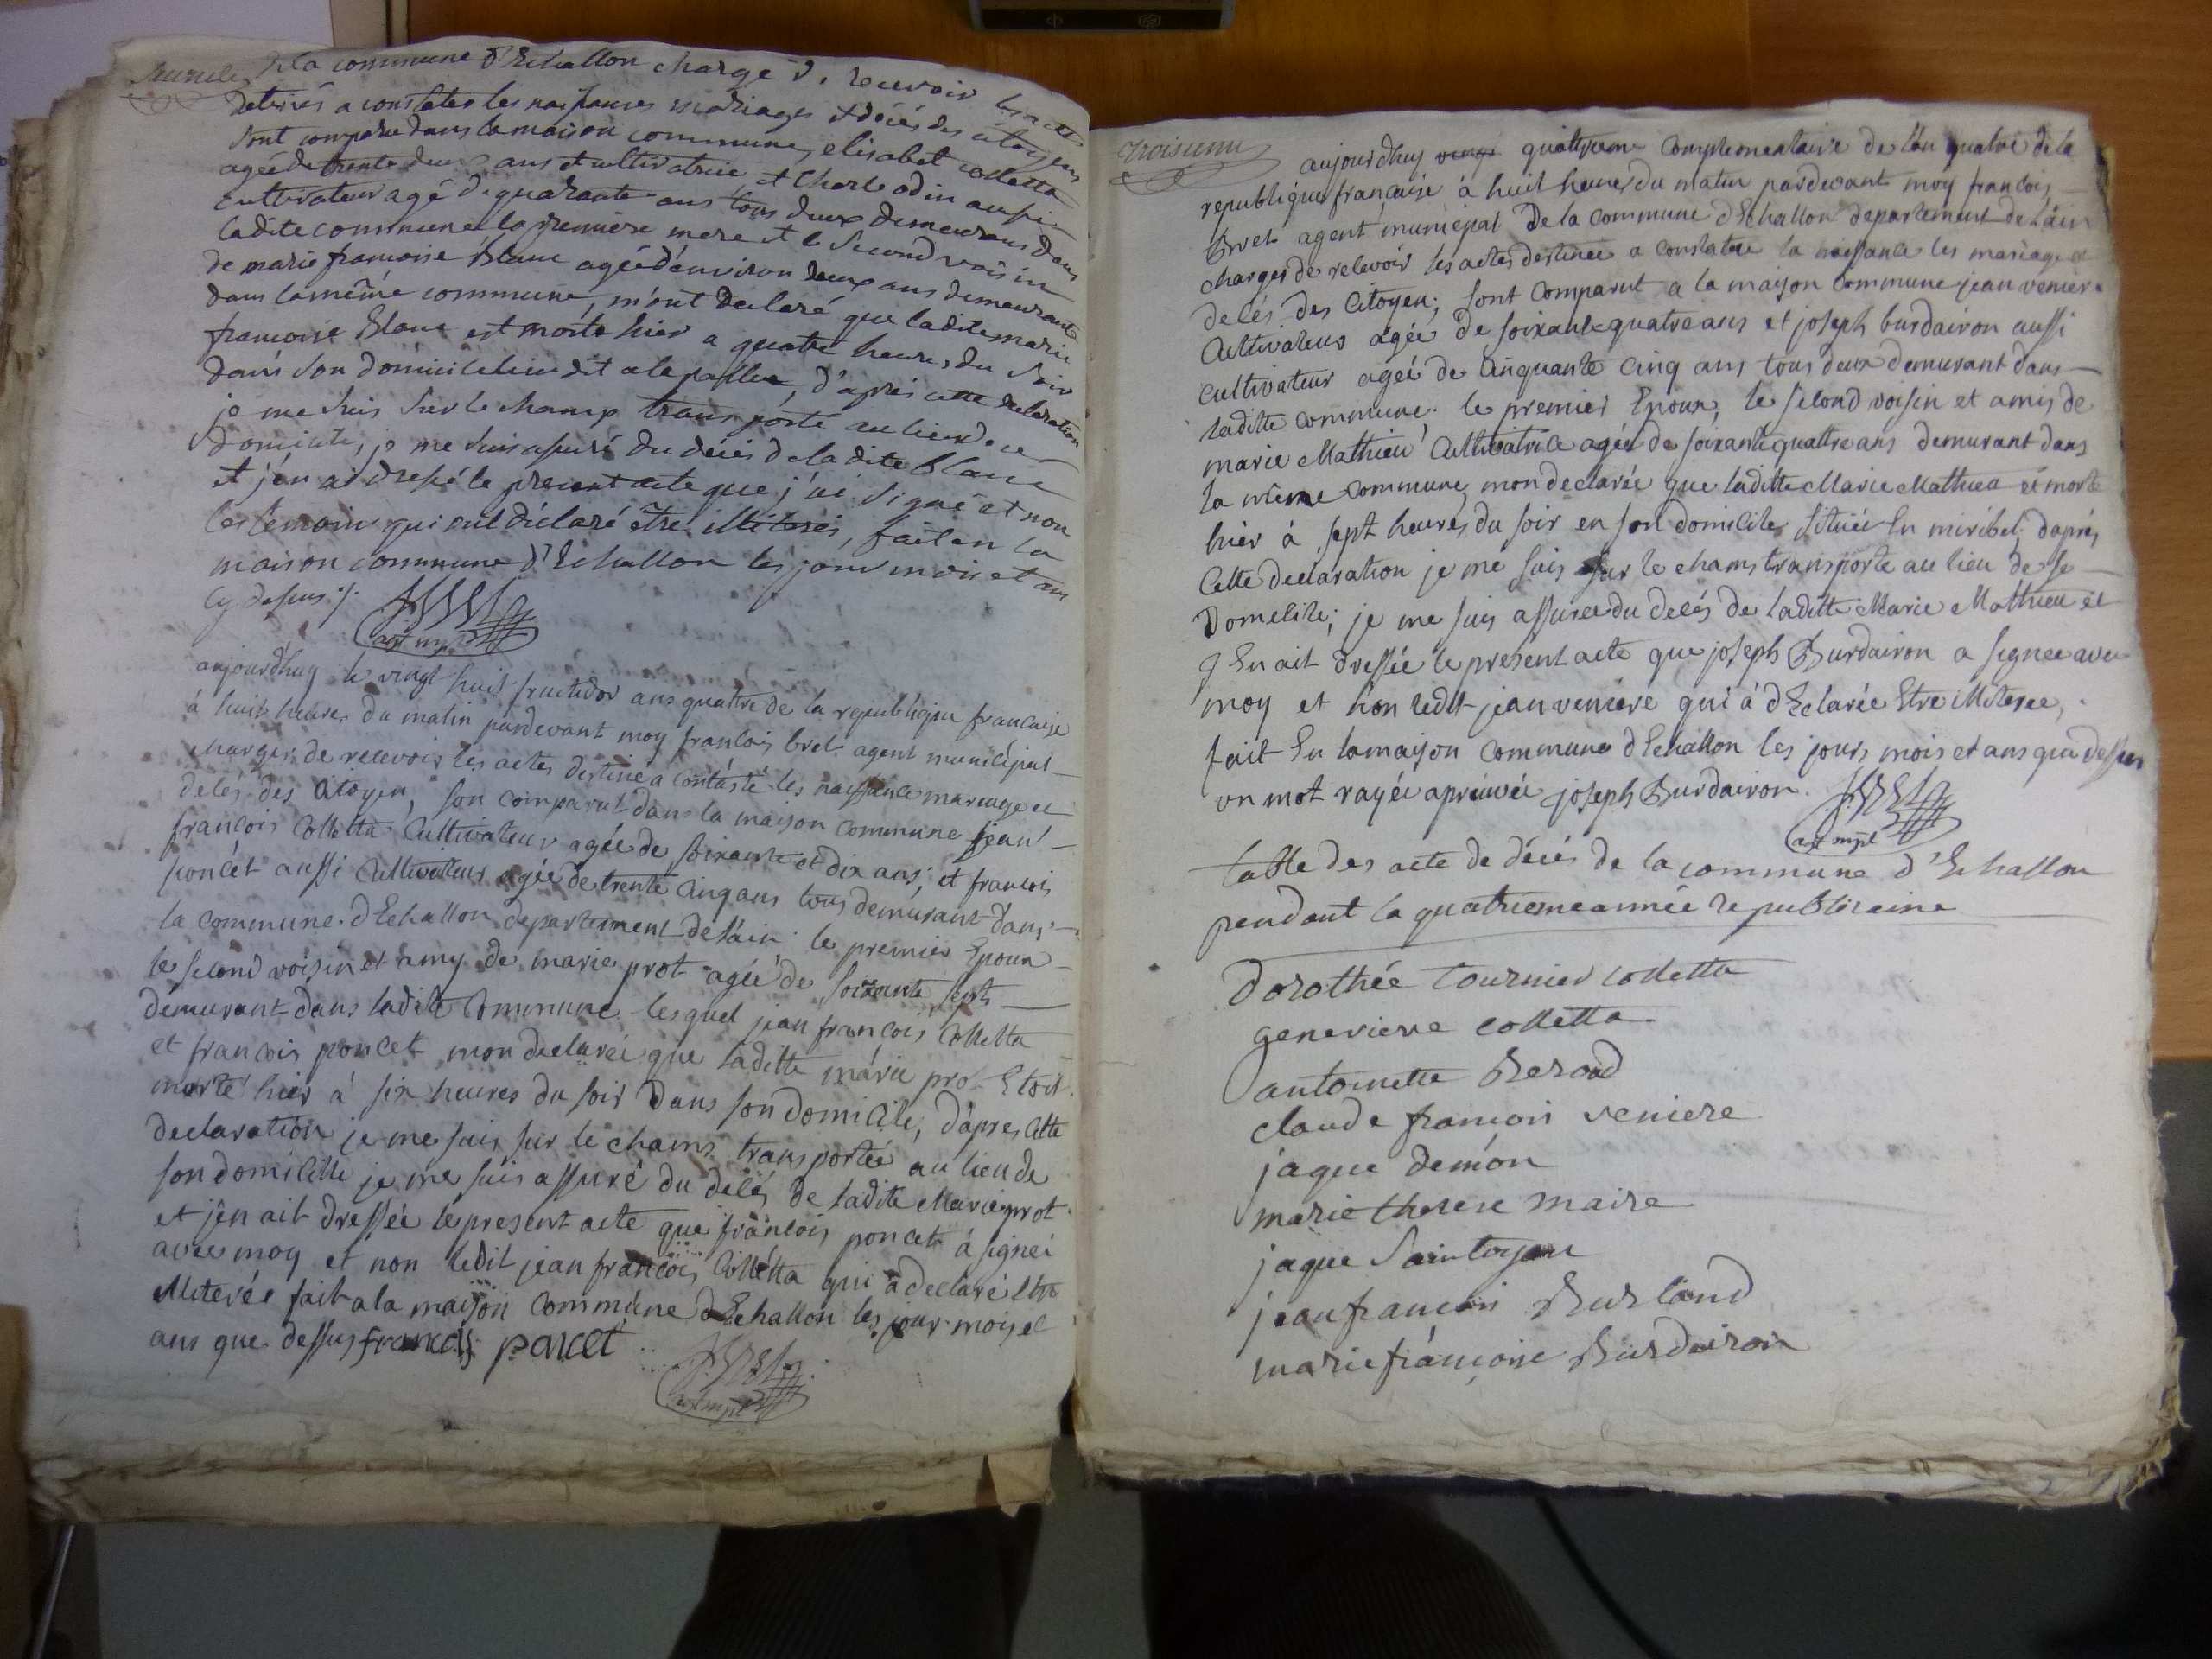 de la commune d'Echallon chargé de recevoir les actes
destinés a constater les naissances mariages et décés des citoyens
sont comparu dans la maison commune, elisabet colletta
agée de trente deux ans et cultivatrice et Charle odin aussi
cultivateur agé de quarante ans tous deux demeurans dans
ladite commune la premiere mere et le second voisin
de marie francoise Blanc agée d'environ deux ans demeurante
dans la même commune, m'ont declaré que ladite marie
francoise Blanc est morte hier a quatre heures du soir
dans son domicile lieu dit a la palla, d'après cette declaration
je me suis sur le champ transporté au lieu de ce
domicile, je me suis assuré du décés de ladite blanc
et j'en ai dressé le present acte que j'ai signé et non
les temoins qui ont déclaré être illiterés, fait en la
maison commune d'Echallon les jour mois et an
cy dessus ./.
agt mpl
aujourdhuy le vingt huit fructidor ans quattre de la republique francaise
à huit heures du matin pardevant moy francois bret agent municipal
charger de recevoir les actes destiné a contasté les naissance mariage et
decés des citoyen, son comparut dans la maison commune jean
francois Colletta Cultivateur agée de soixante et dix ans, et francois
poncet aussi Cultivateur agée de trente cinq ans tous demurant dans
la commune d'Echallon departement de lain le premier Epoux
le second voisin et amy de marie prot agée de soixante sept
demurant dans ladite Commune lesquel jean francois Colletta
et francois poncet mon declarée que laditte marie prot Etoit
morte hier à six heures du soir dans son domicile, dapres Cette
declaration je me suis sur le chams transportée au lieu de
son domicille je me suis assuré du decés de ladite Marie prot
et jen ait dressée le present acte que francois poncet à signei
avec moy et non ledit jean francois Colletta qui à declaré Etre
illiterée fait a la maison Commune d'Echallon les jour mois et
ans que dessus francois poncet
agt mpl
troisieme
aujourdhuy vingt quattrieme Complementaire de l'an quatre de la
republique francaise à huit heures du matin pardevant moy francois
Bret agent municipal de la commune d'Echallon departement de Lain
charger de recevoir les actes destinée a constatée la naissance les mariage et
decés des Citoyen; sont Comparut a la maison Commune jean veniere
Cultivateur agée de soixante quatre ans et joseph burdairon aussi
cultivateur ageé de Cinquante Cinq ans tous deux demurant dans
laditte commune. le premier Epoux, le second voisin et amis de
marie Mathieu Cultivatrice agée de soixante quattre ans demurant dans
la même commune mon declarée que laditte Marie Mathieu et morte
hier à sept heures du soir en son domicile situéé En miribel, daprés
Cette declaration je me suis sur le chams transporte au lieu de se
Domelile; je me suis assuree du decés de laditte Marie Mathieu et
J'En ait dressée le present acte que joseph Burdairon a signee avec
moy et non ledit jean veniere qui à dEclarée Etre illiteree,
fait En la maison Commune d'Echallon les jours mois et ans que dessus
un mot rayée apreuvée joseph Burdairon.
agt mpl
table des acte de décés de la commune d'Echallon
pendant la quatrieme année republicaine
Dorothée tournier colletta
genevieve colletta
antoinette Berod
claude francois veniere
jaque demôn
marie therese maire
jaque Saintoyan
jean francois Burland
marie francoise Burdairon